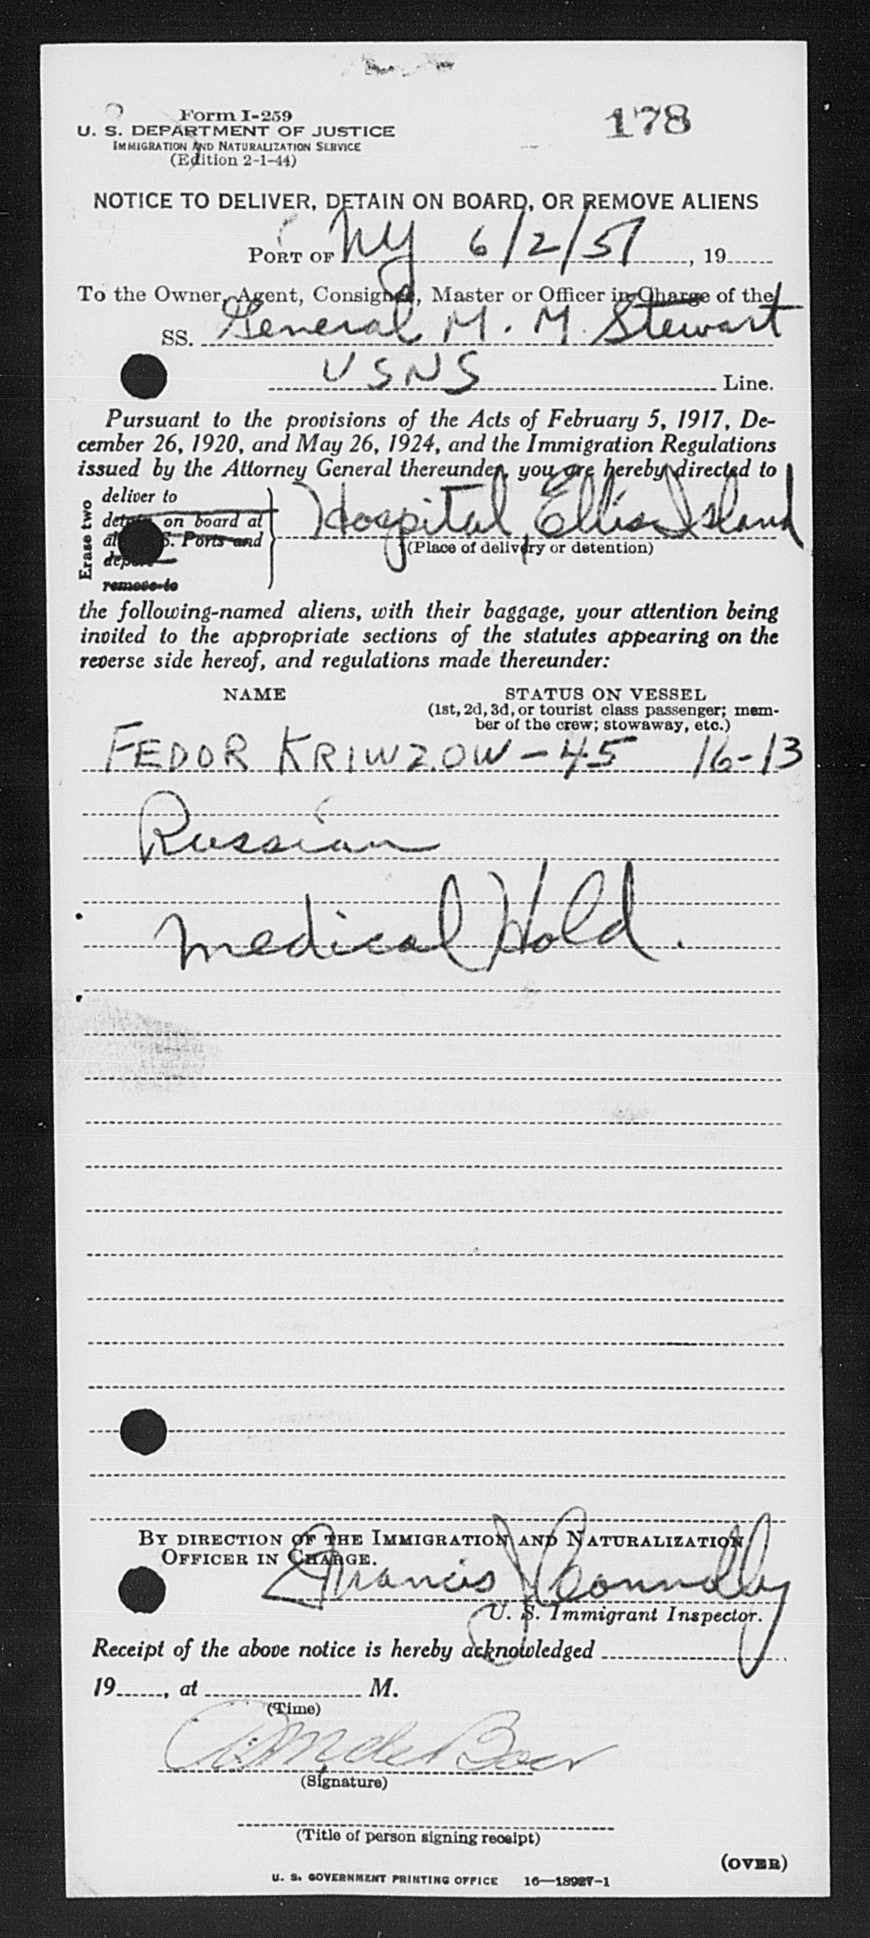 Form I-259
178
U. S. DEPARTMENT OF JUSTICE
IMMIGRATION AND NATURALIZATION SERVICE
(Edition 2-1-44)
NOTICE TO DELIVER, DETAIN ON BOARD, OR REMOVE ALIENS
PORT OF NY 6/2/51, 19
To the Owner, Agent, Consignee, Master or Officer in Charge of the
SS. General M. M. Stewart
USNS Line.
Pursuant to the provisions of the Acts of February 5, 1917, De-
cember 26, 1920, and May 26, 1924, and the Immigration Regulations
issued by the Attorney General thereunder, you are hereby directed to
Erase two
deliver to
detain on board at
all U. S. Ports and
depart
remove to
Hospital Ellis Island
(Place of delivery or detention)
the following-named aliens, with their baggage, your attention being
invited to the appropriate sections of the statutes appearing on the
reverse side hereof, and regulations made thereunder:
NAME STATUS ON VESSEL
(1st, 2d, 3d, or tourist class passenger; mem-
ber of the crew; stowaway, etc.)
FEDOR KRIWZOW - 45 16-13
Russian
Medical Hold.
BY DIRECTION OF THE IMMIGRATION AND NATURALIZATION
OFFICER IN CHARGE.
Francis J Connolly
U. S. Immigrant Inspector.
Receipt of the above notice is hereby acknowledged
19, at M.
(Time)
(Signature)
(Title of person signing receipt)
(OVER)
U. S. GOVERNMENT PRINTING OFFICE 16—18927-1